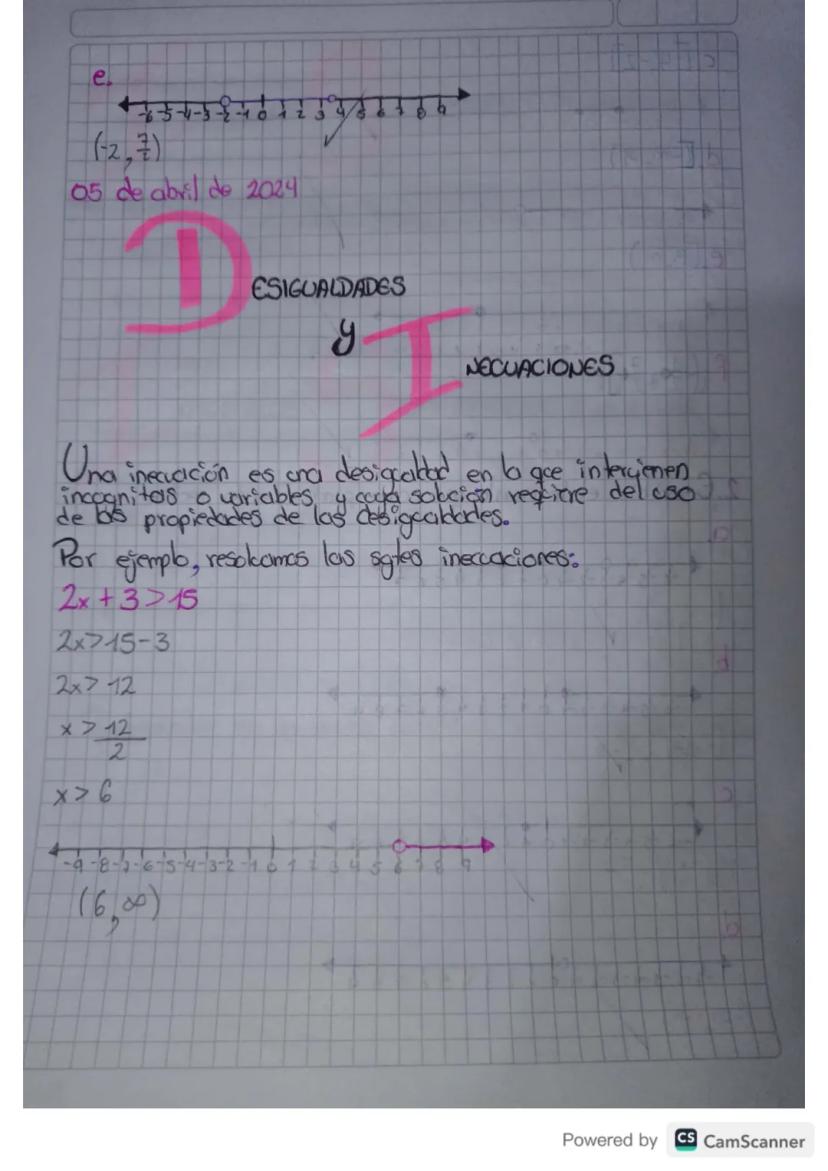 e.
-6 -5 -4 -3 -2 -1 0 1 2 3 4 5 6 7 8 9
(-2, 7/2)
05 de abril de 2024
DESIGUALDADES
y
INECUACIONES
Una inecuación es una desigualdad en la que intervienen
incognitas o variables y cuya solución requiere del uso
de las propiedades de las desigualdades.
Por ejemplo, resolvamos las sgtes inecuaciones:
2x + 3 > 15
2x > 15 - 3
2x > 12
x > 12/2
x > 6
-9 -8 -7 -6 -5 -4 -3 -2 -1 0 1 2 3 4 5 6 7 8 9
(6, ∞)
Powered by CS CamScanner